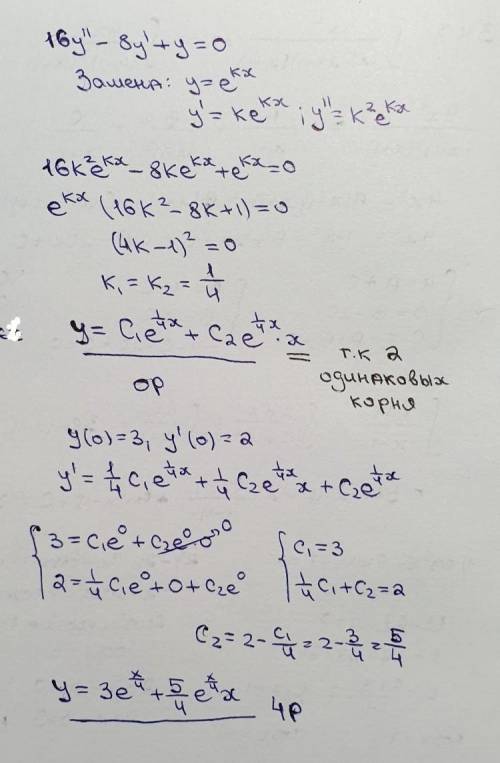 16y'' - 8y' + y = 0
Замена: y = e^{kx}
y' = ke^{kx} ; y'' = k²e^{kx}
16k²e^{kx} - 8ke^{kx} + e^{kx} = 0
e^{kx} (16k² - 8k + 1) = 0
(4k - 1)² = 0
k₁ = k₂ = 1/4
y = C₁e^{1/4 x} + C₂e^{1/4 x} · x
ОР
т.к 2
одинаковых
корня
y(0) = 3, y'(0) = 2
y' = 1/4 C₁e^{1/4 x} + 1/4 C₂e^{1/4 x} x + C₂e^{1/4 x}
{ 3 = C₁e⁰ + C₂e⁰·0 0
2 = 1/4 C₁e⁰ + 0 + C₂e⁰
{ C₁ = 3
1/4 C₁ + C₂ = 2
C₂ = 2 - C₁/4 = 2 - 3/4 = 5/4
y = 3e^{x/4} + 5/4 e^{x/4} x
ЧР